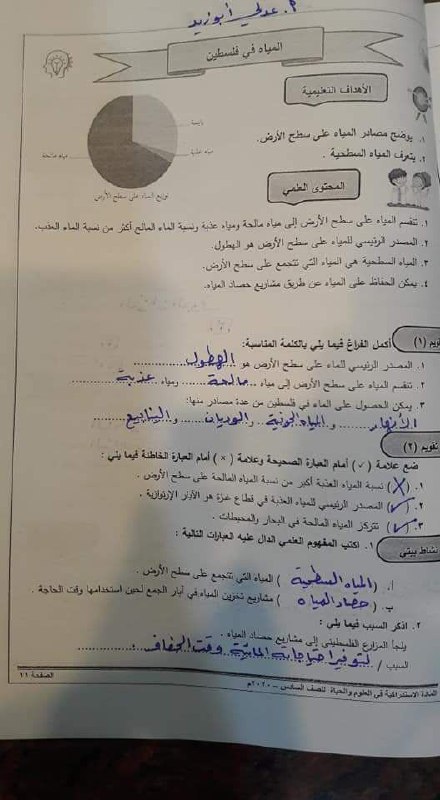 أ. عدلي أبوزيد
المياه في فلسطين
الأهداف التعليمية
يابسة
١. يوضح مصادر المياه على سطح الأرض.
مياه عذبة
مياه مالحة
٢. يتعرف المياه السطحية.
توزيع الماء على سطح الأرض
المحتوى العلمي
١. تنقسم المياه على سطح الأرض إلى مياه مالحة ومياه عذبة ونسبة الماء المالح أكثر من نسبة الماء العذب.
٢. المصدر الرئيسي للمياه على سطح الأرض هو الهطول.
٣. المياه السطحية هي المياه التي تتجمع على سطح الأرض.
٤. يمكن الحفاظ على المياه عن طريق مشاريع حصاد المياه.
تقويم (١) أكمل الفراغ فيما يلي بالكلمة المناسبة:
١. المصدر الرئيسي للماء على سطح الأرض هو الهطول
٢. تنقسم المياه على سطح الأرض إلى مياه مالحة ومياه عذبة
٣. يمكن الحصول على الماء في فلسطين من عدة مصادر منها:
الأنهار و المياه الجوفية و الوديان و الينابيع
تقويم (٢)
ضع علامة (✓) أمام العبارة الصحيحة وعلامة (×) أمام العبارة الخاطئة فيما يلي:
١. (X) نسبة المياه العذبة أكبر من نسبة المياه المالحة على سطح الأرض.
٢. (✓) المصدر الرئيسي للمياه العذبة في قطاع غزة هو الآبار الارتوازية.
٣. (✓) تتركز المياه المالحة في البحار والمحيطات.
نشاط بيتي ١. اكتب المفهوم العلمي الدال عليه العبارات التالية:
أ. (المياه السطحية) المياه التي تتجمع على سطح الأرض.
ب. (حصاد المياه) مشاريع تخزين المياه في آبار الجمع لحين استخدامها وقت الحاجة.
٢. اذكر السبب فيما يلي:
يلجأ المزارع الفلسطيني إلى مشاريع حصاد المياه.
السبب / لتوفير احتياجاته المائية وقت الجفاف
المادة الاستدراكية في العلوم والحياة للصف السادس – ٢٠٢٠م
الصفحة ١١